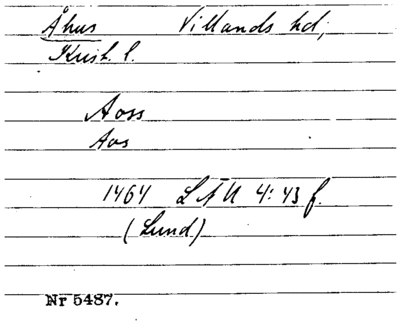 Åhus Villands hd,
Krist. l.
Aoss
Aos
1464 LÄU 4:43 f.
(Lund)
Nr 5487.